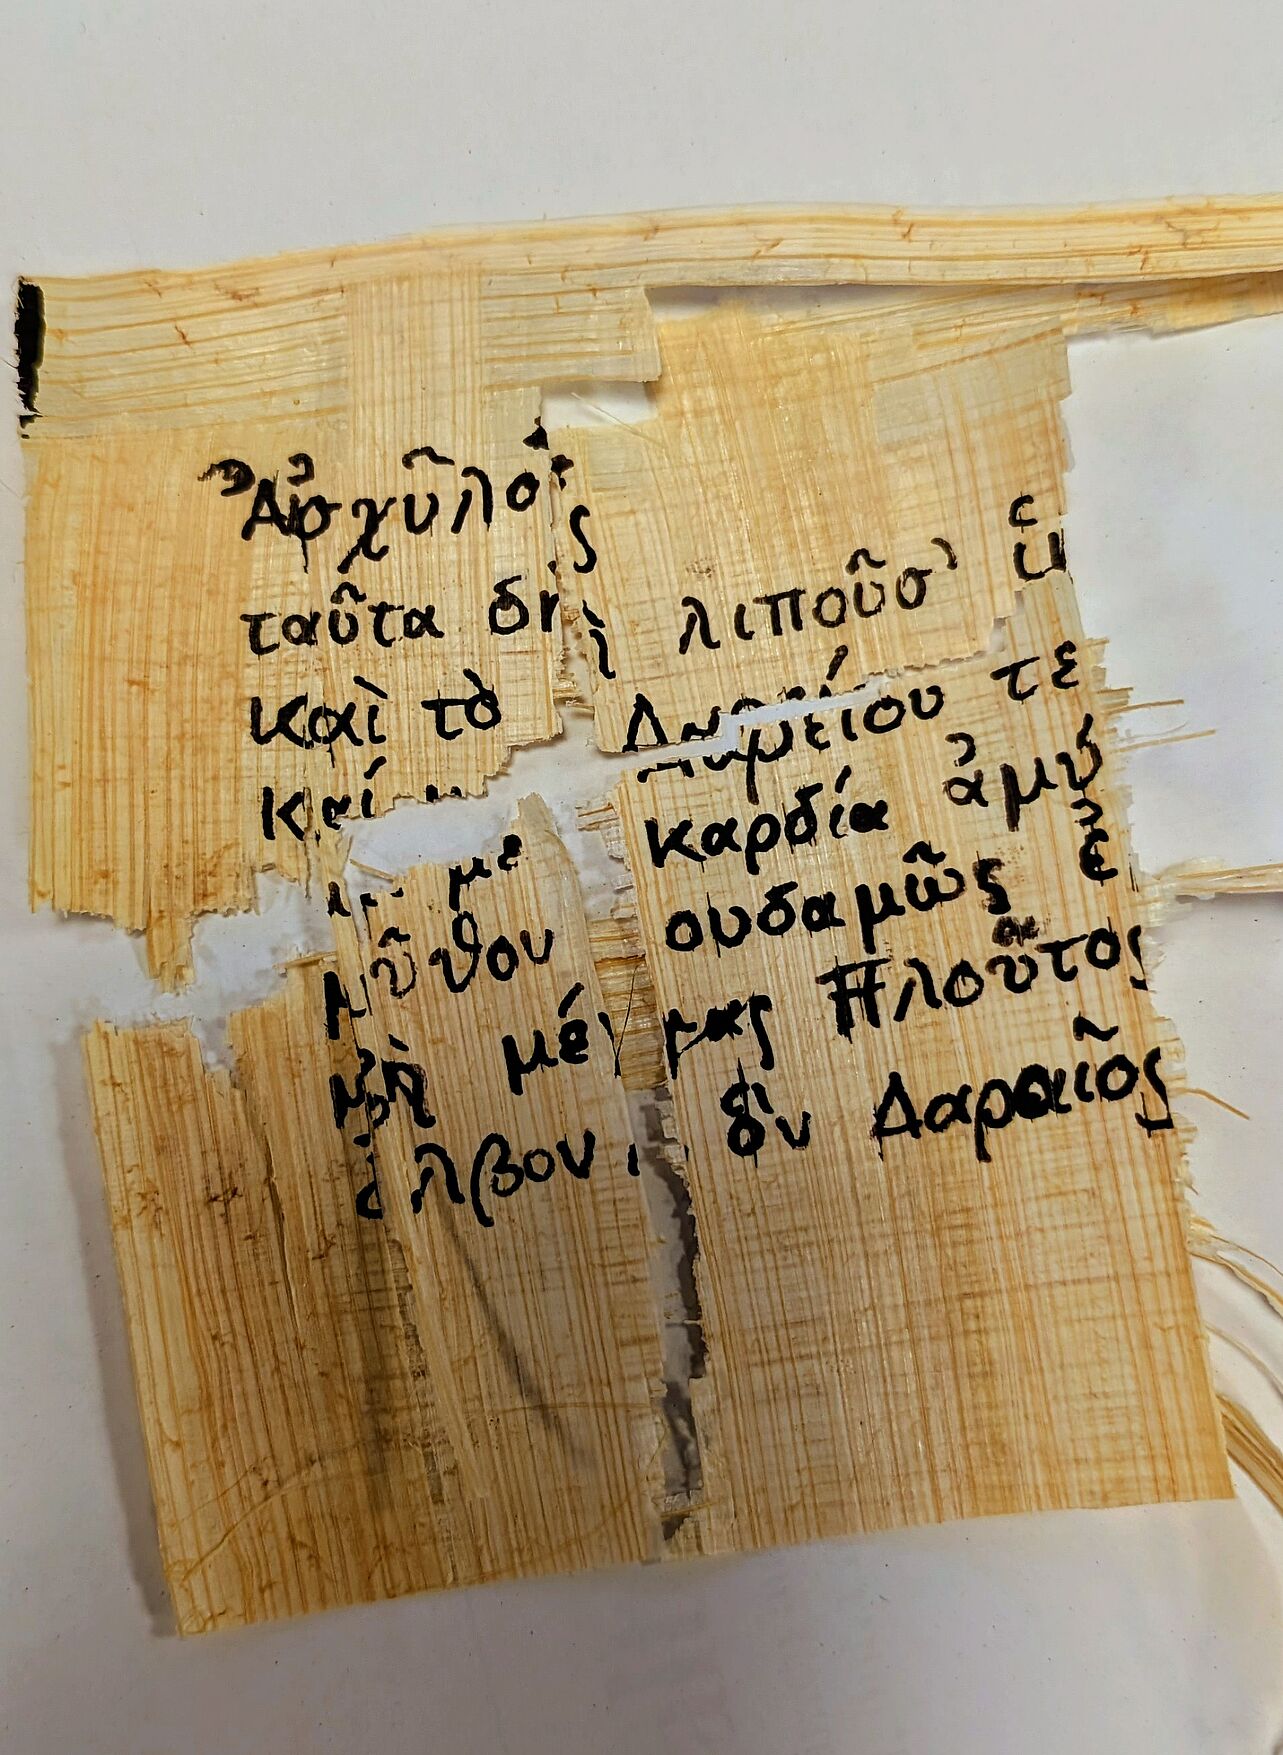 Ἀσχῦλος
ταῦτα δὴ λιποῦσ᾽ ἱ
καὶ τὸ Δαρείου τε
καί με καρδία ἀμύ
μῦθον ουδαμῶς ἐ
μὴ μέγας Πλοῦτος
ὄλβον, ὃν Δαρεῖος